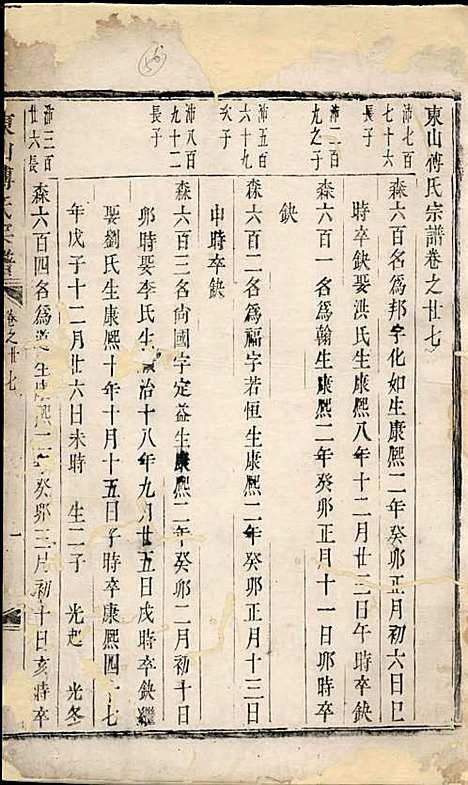 56
東山傅氏宗譜卷之廿七
沛七百七十六
森六百名為邦字化如生康熙二年癸卯正月初六日巳
時卒缺娶洪氏生康熙八年十二月廿三日午時卒缺
沛二百九之子
森六百一名為翰生康熙二年癸卯正月十一日卯時卒
缺
沛五百六十九次子
森六百二名為福字若恒生康熙二年癸卯正月十三日
申時卒缺
沛八百九十二長子
森六百三名尚國字定益生康熙二年癸卯二月初十日
卯時娶李氏生順治十八年九月廿五日戌時卒缺繼
娶劉氏生康熙十年十月十五日子時卒康熙四十七
年戊子十二月廿六日未時 生二子 光起 光冬
沛三百廿六長
森六百四名為 生康熙二年癸卯三月初十日亥時卒
東山傅氏宗譜
卷之廿七
一